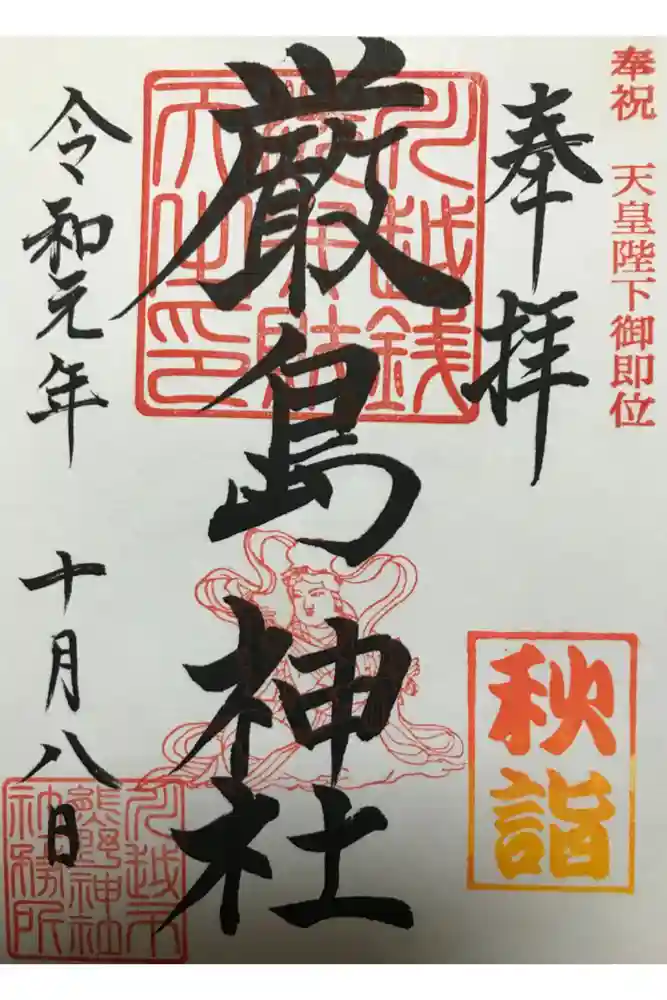 奉祝 天皇陛下御即位
奉拝
川越銭
洗弁財
天之印
厳島神社
秋詣
令和元年 十月八日
川越市
熊野神社
社務所